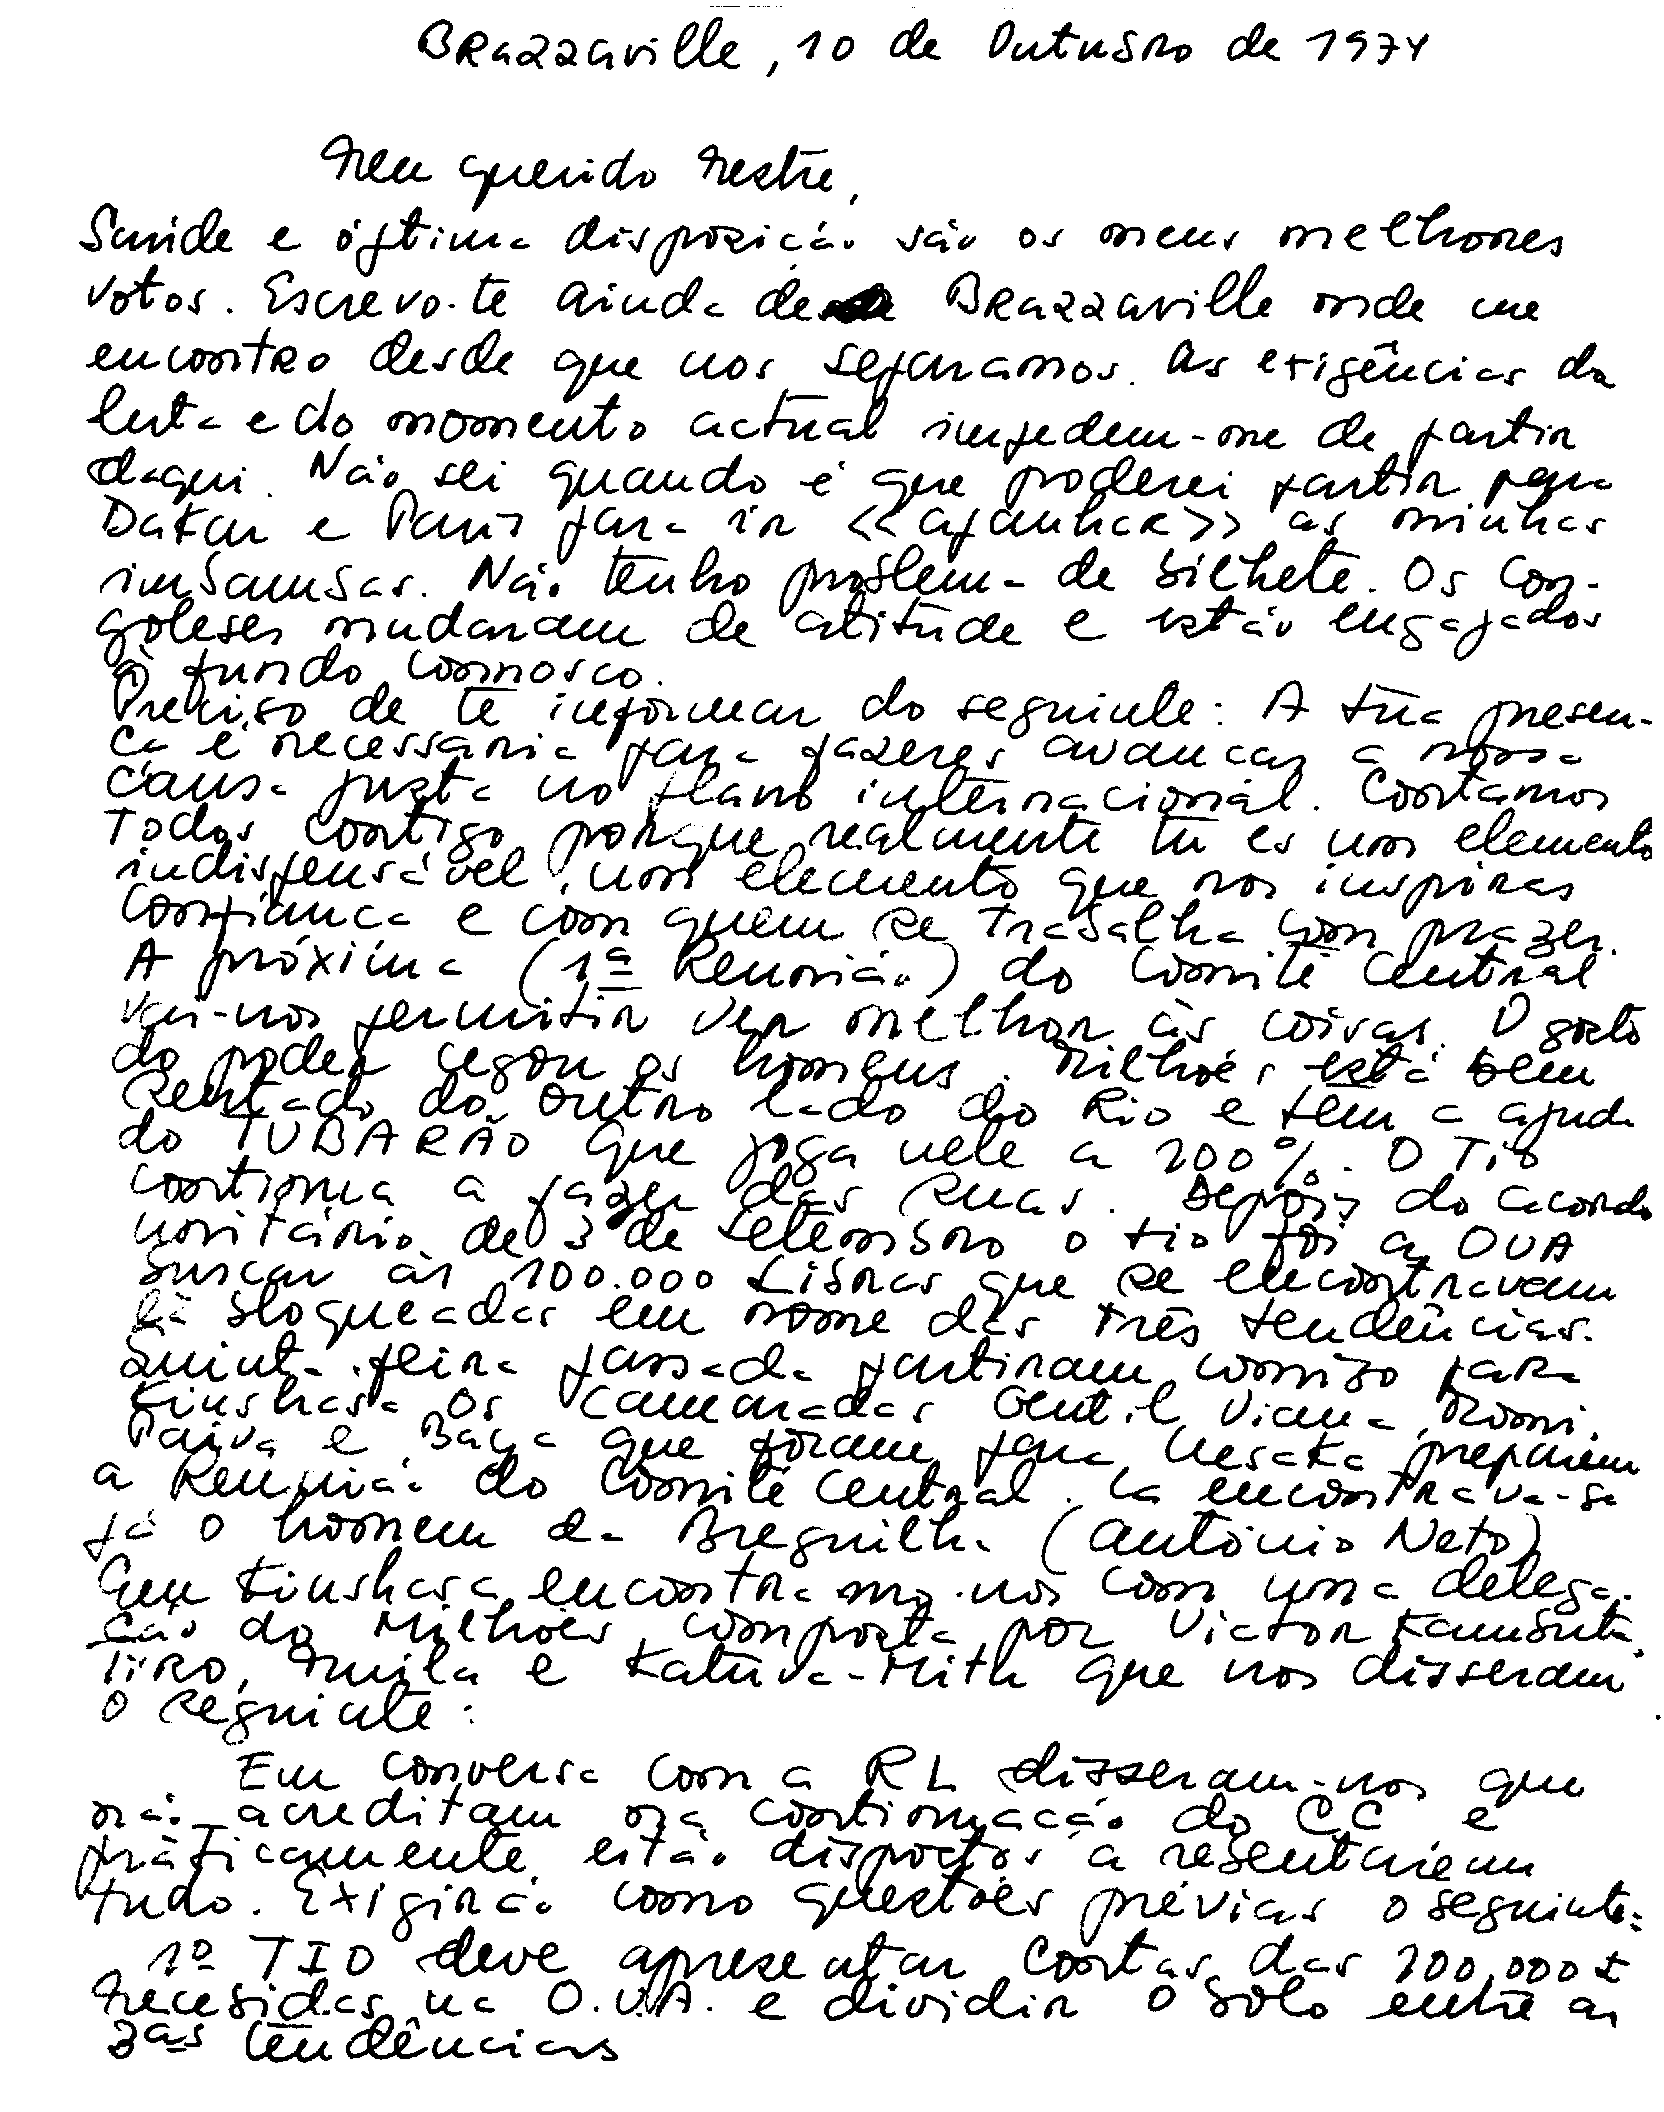 Brazzaville, 10 de Outubro de 1974
Meu querido Mestre,
Saúde e óptima disposição são os meus melhores
votos. Escrevo-te ainda de Brazzaville onde me
encontro desde que nos separamos. As exigências da
luta e do momento actual impedem-me de partir
daqui. Não sei quando é que poderei partir para
Dakar e Paris para ir <<apanhar>> as minhas
imbambas. Não tenho problema de bilhete. Os con-
goleses mudaram de atitude e estão engajados
a fundo connosco.
Preciso de te informar do seguinte: A tua presen-
ça é necessária para fazeres avançar a nossa
causa justa no plano internacional. Contamos
todos contigo porque realmente tu és um elemento
indispensável, um elemento que nos inspiras
confiança e com quem se trabalha com prazer.
A próxima (1ª Reunião) do Comité Central
vai-nos permitir ver melhor as coisas. O gosto
do poder cegou os homens. Milhões está bem
sentado do outro lado do Rio e tem a ajuda
do TUBARÃO que joga nele a 200%. O Tio
continua a fazer das suas. Depois do acordo
unitário de 3 de Setembro o tio foi a OUA
buscar as 100.000 Libras que se encontravam
lá bloqueadas em nome das três tendências.
Quinta-feira passada partiram comigo para
Kinshasa os camaradas Gentil Viana, Moni,
Paiva e Baya que foram para Lusaka preparem
a Reunião do Comité Central. Lá encontrava-se
já o homem da Breguilha (António Neto)
Em Kinshasa encontramo-nos com uma delega-
ção do Milhões, composta por Victor Kambuta,
TIRO, Muila e Katuva-Mith que nos disseram
o seguinte:
Em conversa com a RL disseram-nos que
não acreditam na continuação do CC e
práticamente estão dispostos a resentarem
tudo. Exigirão como questões prévias o seguinte:
1º TIO deve apresentar contas das 100.000 £
recebidas na O.U.A. e dividir o bolo entre as
3as tendências